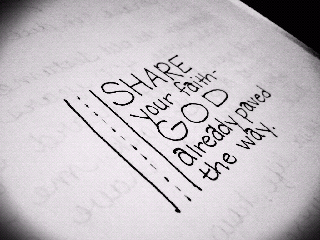 SHARE
your faith-
GOD
already paved
the way.